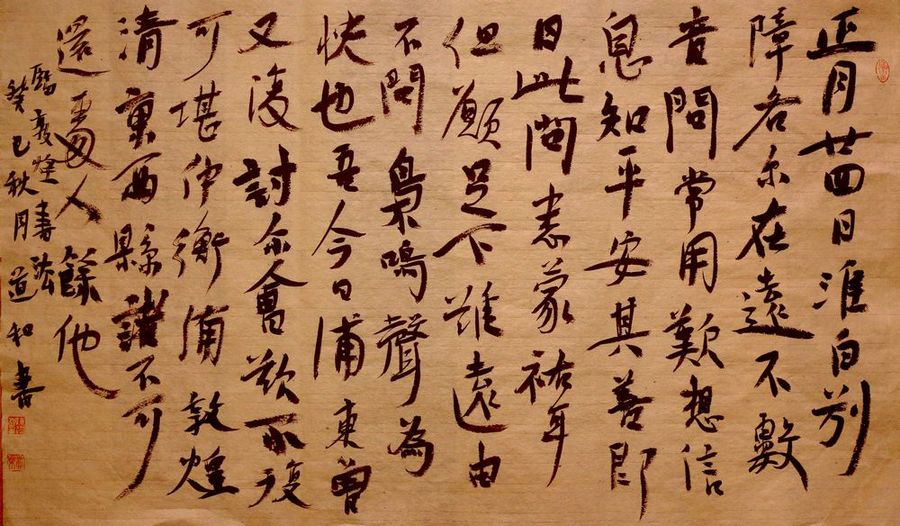 正月廿四日淮白别
障各尔在遠不數
音問常用歎想信
息知平安其善即
日此間悉蒙祐年
但願足下雖遠由
不問梟鳴聲為
快也吾今日甫東曽
又湊討尔會歎不復
可堪仲衡甫敦煌
清東西縣諸不可
還人餘他
臨敦煌書法
癸巳秋月道和書